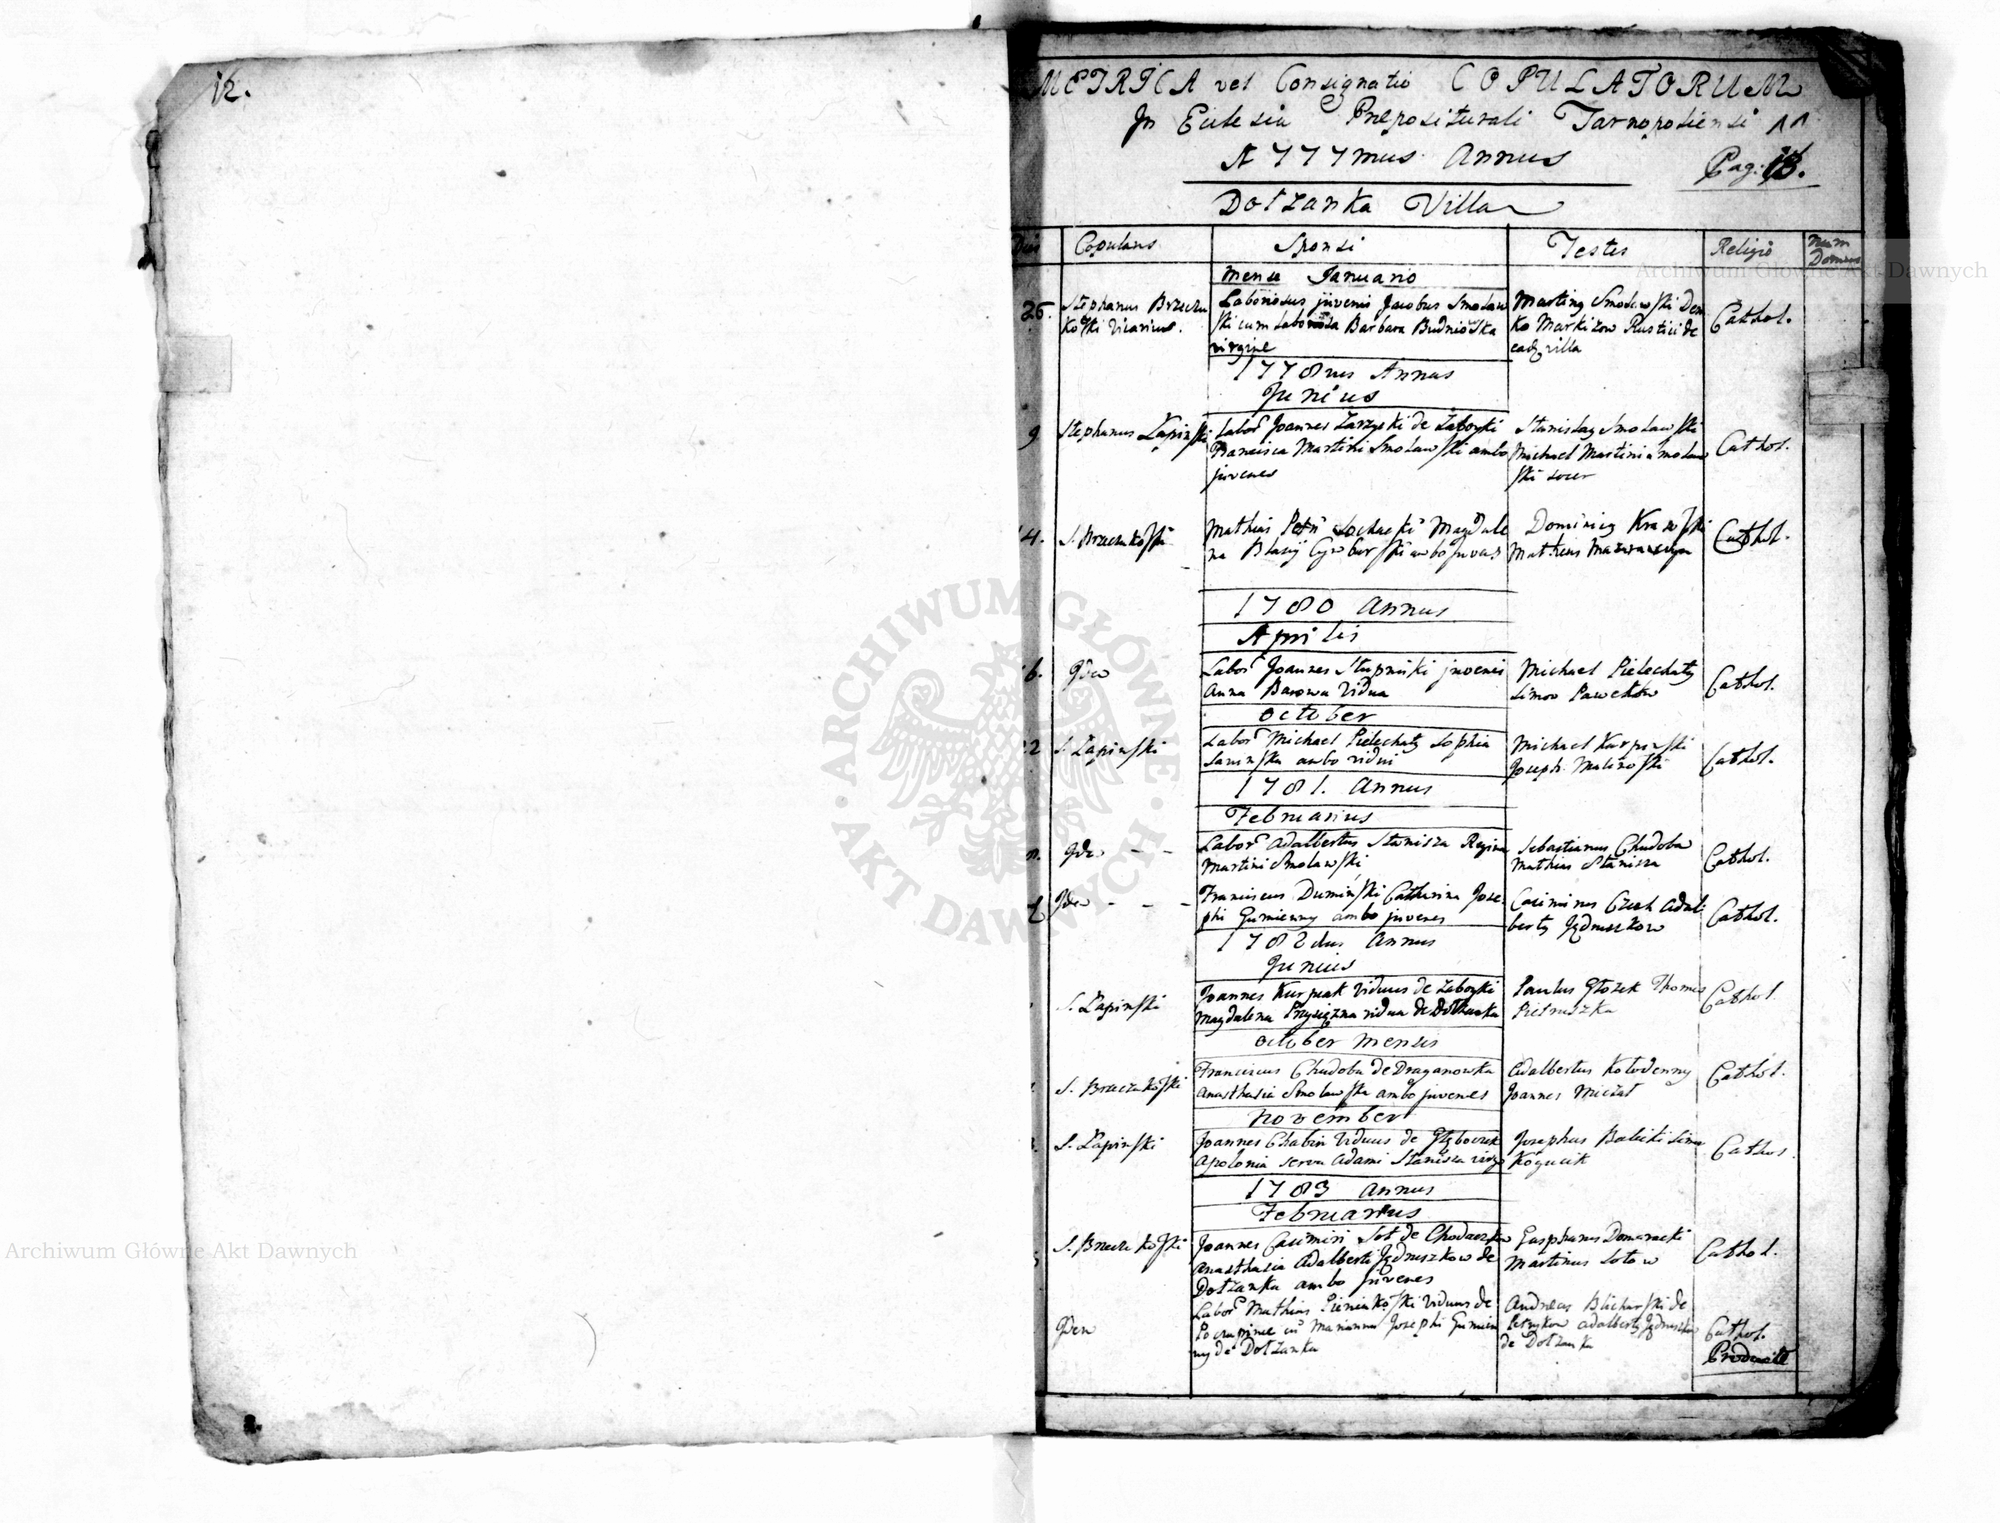 12.
METRICA vel Consignatio COPULATORUM
In Eclesia Præpositurali Tarnopoliensi 11
1777mus Annus
Pag: 13.
Dołzanka Villa
Dies Copulans Sponsi Testes Religio Num Domus
Mense Januario
26. Stephanus Brzeczkoski Vicarius.
Laboriosus juvenis Jacobus Smolawski cum Laboriosa Barbara Budniowska virgine
Cathol.
1778vus Annus
Junius
9 Stephanus Łapinski
Labor Joannes Zarzycki de Zaboyki
Francisca Martini Smolawski ambo
juvenes
Stanislaus Smolawski
Michael Martini Smolawski socer
Cathol.
4. S. Brzeczkoski
Mathias Petri Lochacki Magdalena
Blasij ambo
Dominicus
Mathias
Cathol.
1780 Annus
Aprilis
6. Idem
Labor Joannes Stupnicki juvenis
Anna Barowa Vidua
Michael Pielechaty
Simon Pawełków
Cathol.
October
22 S. Łapinski
Labor Michael Pielechaty Sophia
Saninska ambo vidui
Michael Karpinski
Joseph Malinoski
Cathol.
1781. Annus
Februarius
Idem - -
Labor Adalbertus Stanisza Regina
Martini Smolawski
Sebastianus Chudoba
Mathias Stanisza
Cathol.
Idem - - -
Franciscus Duminski Catharina Josephi
Gumienny ambo juvenes
Casimirus Czech Adalbertus
Jędruszkow
Cathol.
1782dus Annus
Junius
S. Łapinski
Joannes Kurpiak Viduus de Zaboyki
Magdalena Przysiężna vidua de Dołzanka
Paulus Głozek Thomas
Pietruszka
Cathol.
October Mensis
S. Brzeczkoski
Franciscus Chudoba de Draganowka
Anasthasia Smolawska ambo juvenes
Adalbertus Kołodenny
Joannes Mieżał
Cathol.
November
S. Łapinski
Joannes Chabin Viduus de Głęboczek
Apolonia serva Adami Stanisza virgo
Josephus Balicki Simon
Kogucik
Cathol.
1783 Annus
Februarius
S. Brzeczkoski
Joannes Casimiri Sot de Chodaczkow
Anasthasia Adalberti Jędruszkow de
Dołzanka ambo juvenes
Gasparus Domaracki
Martinus Sotow
Cathol.
Idem
Labor Mathias Pieniakoski viduus de
cum Marianna Josephi Gumienny
de Dołzanka
Andreas Blicharski de
Petrykow Adalbertus Jędruszkow
de Dołzanka
Cathol.
Archiwum Główne Akt Dawnych
Archiwum Główne Akt Dawnych
ARCHIWUM GŁÓWNE AKT DAWNYCH